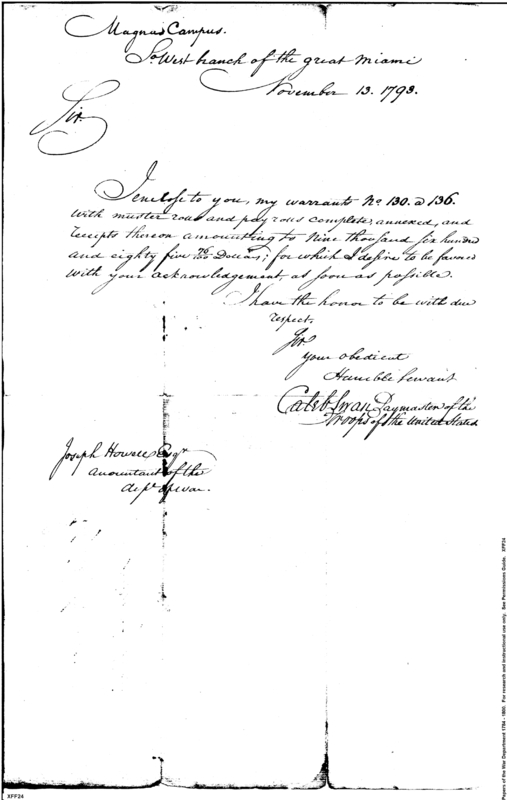 Magnus Campus.
So. West branch of the great Miami
November 13. 1793.
Sir.
I enclose to you, my warrants No. 130. @ 136.
with muster rolls and pay rolls complete, annexed, and
receipts thereon amounting to Nine thousand six hundred
and eighty five 76/100 Dollars; for which I desire to be favored
with your acknowledgement, as soon as possible.
I have the honor to be with due
respect.
Sir.
your obedient
Humble Servant
Caleb Swan Paymaster of the
Troops of the United States
Joseph Howell Esqr
accountant of the
dept. of war.
XFF24
Papers of the War Department 1784 - 1800. For research and instructional use only. See Permissions Guide. XFF24